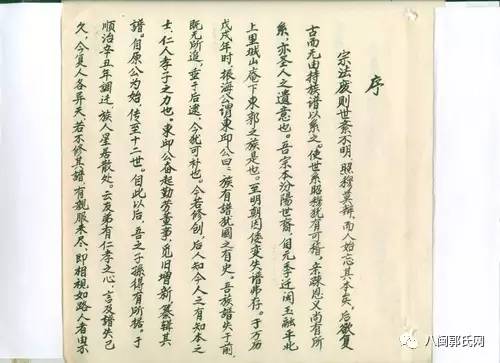 序
宗法废则世系不明，照穆莫辩，而人始忘其本矣，后欲复
古而无由持族谱以系之。使世系照穆犹有可稽，亲疎恩义尚有所
系，亦圣人之遗意也。吾宗本汾阳世裔，自元季迁闽玉融年北
上里城山庵下東郭之族是也。至明朝因倭变失谱弗存。于万历
戊戌年时，振海公谓東卬公曰：族有谱犹国之有史。吾族谱失于前
既无所追，垂于后逮，今犹可补也。今若修创，后人知今人之有知本之
士，仁人孝子之力也。東卬公奋起勤劳董事，览旧增新，纂辑其
谱。自原公为始，传至十二世。自此以后，吾之子孫得有所据。于
顺治辛丑年調迁，族人星居散处。云友弟有仁孝之心，言及譜失已
久，今复人各异天若不修其譜，有親服未尽，即相视如路人者由不
八闽郭氏网